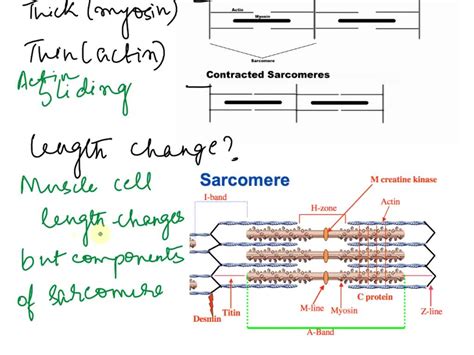 Thick (myosin)
Thin (actin)
Actin
Sliding
length change?
Muscle cell
length changes
but components
of sarcomere
Actin
Myosin
Sarcomere
Contracted Sarcomeres
Sarcomere
M creatine kinase
I-band
H-zone
Actin
Titin
Desmin
M-line
Myosin
C protein
Z-line
A-Band